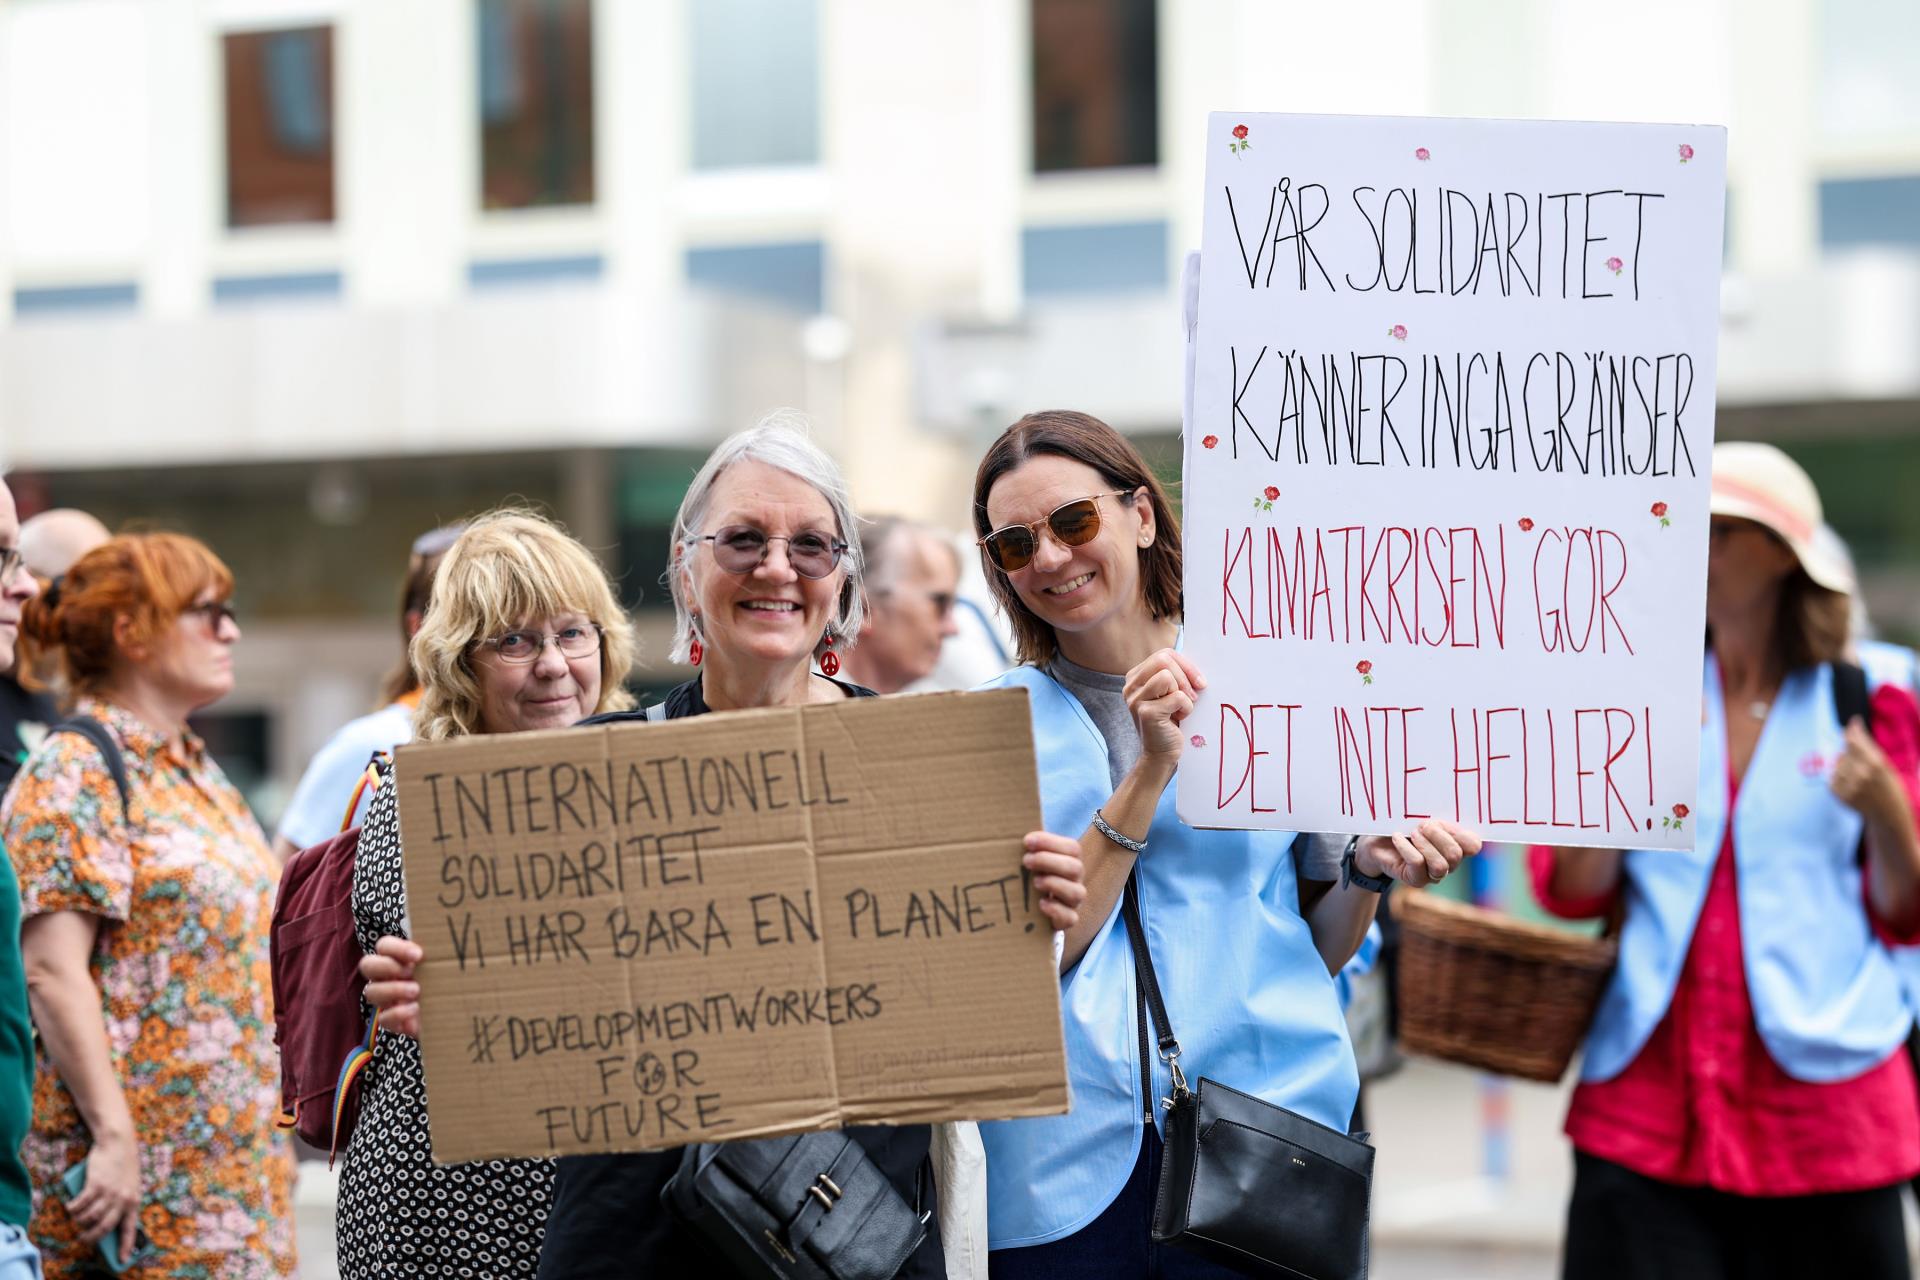 INTERNATIONELL
SOLIDARITET
VI HAR BARA EN PLANET!
#DEVELOPMENTWORKERS
FOR
FUTURE
VÅR SOLIDARITET
KÄNNER INGA GRÄNSER
KLIMATKRISEN GÖR
DET INTE HELLER!